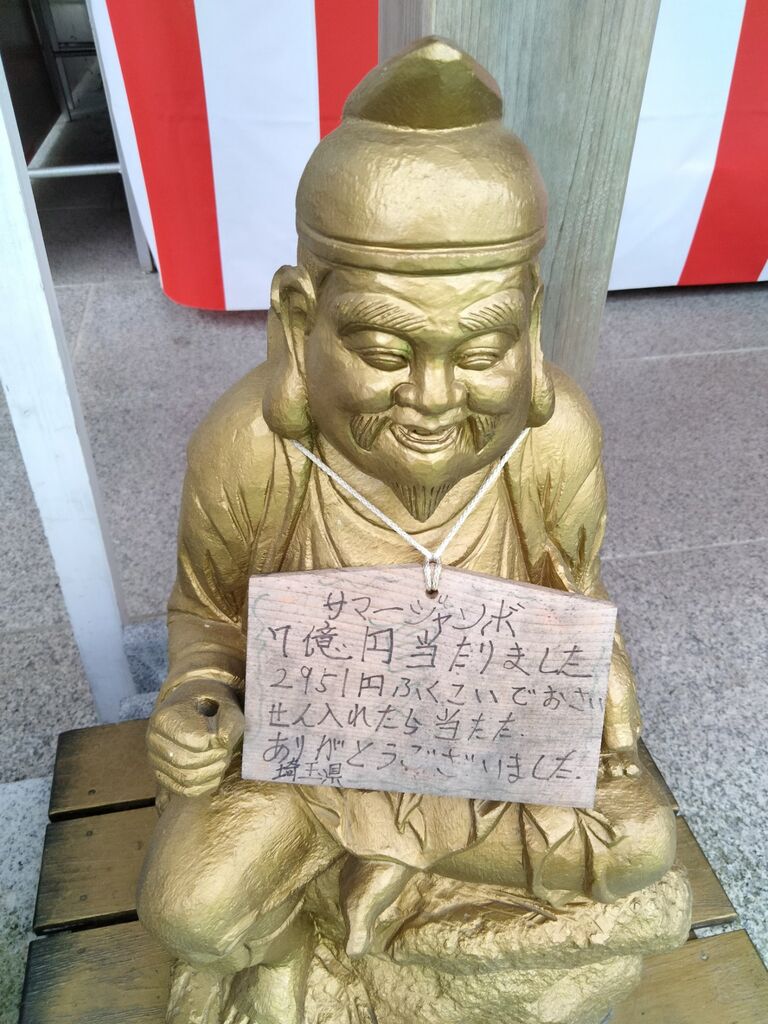 サマージャンボ
7億円当たりました
2951円ふくこいでおさい
せん入れたら当たた.
ありがとうございました.
埼玉県